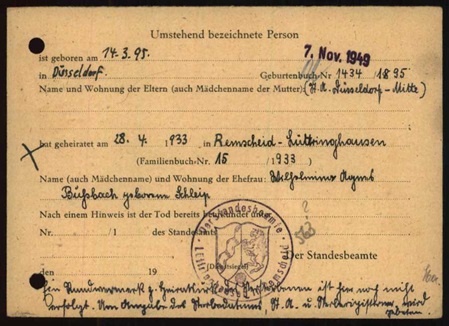 Umstehend bezeichnete Person
7. Nov. 1949
ist geboren am 14.3.95.
in Düsseldorf. Geburtenbuch-Nr 1434 /1895
Name und Wohnung der Eltern (auch Mädchenname der Mutter): (St. A. Düsseldorf-Mitte)
hat geheiratet am 28.4. 1933 in Remscheid-Lüttringhausen
(Familienbuch-Nr. 15 /1933)
Name (auch Mädchenname) und Wohnung der Ehefrau: Wilhelmine Agnes
geborene Schleip
Nach einem Hinweis ist der Tod bereits beurkundet
Nr. /1 des Standesamts
Der Standesbeamte
den 19 (Dienstsiegel)
Der Standesbeamte
Ein ist hier noch nicht
erfolgt. Um Angabe des St. A. u. wird
gebeten.